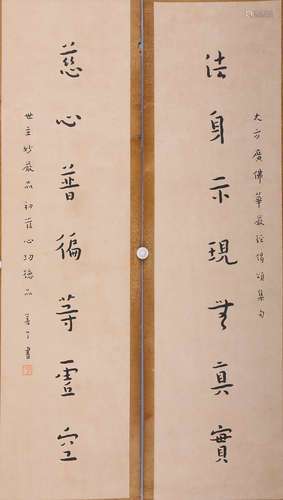 大方廣佛華嚴經偈頌集句
法身示現無真實
慈心普徧等虛空
世主妙嚴品 初發心功德品